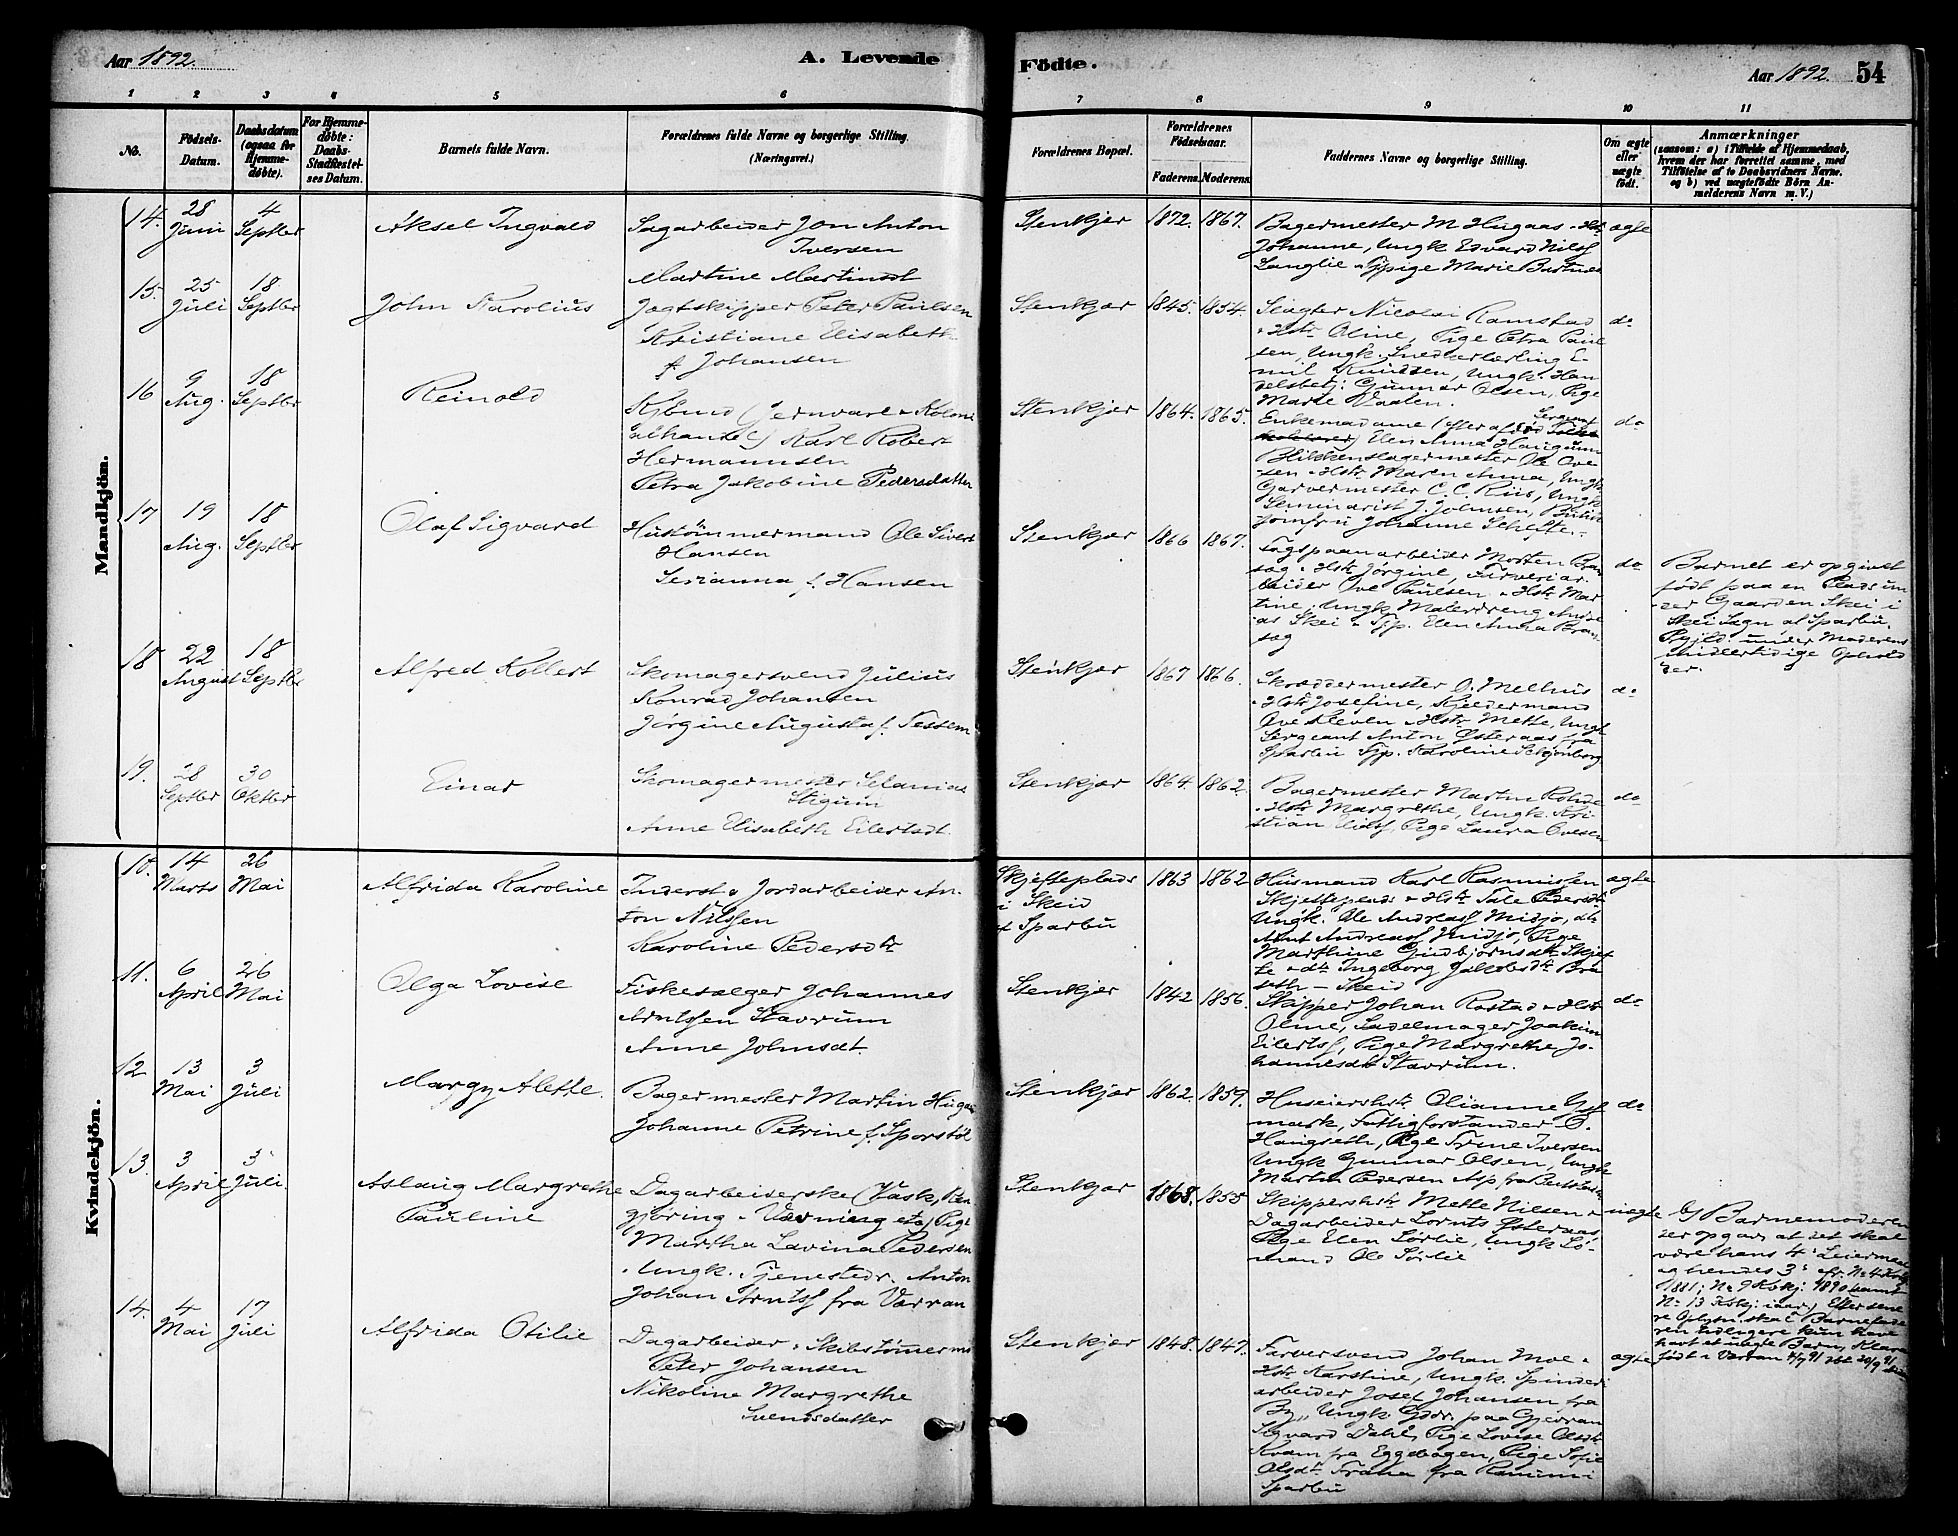 Aar 1892.
A. Levende
Födte.
Aar 1892.
54
1 2 3 4 5 6 7 8 9 10 11
No.
Födsels-
Datum.
Daabsdatum
(ogsaa for
Hjemme-
döbte).
For Hjemme-
döbte:
Daabs-
Stadfæstel-
ses Datum.
Barnets fulde Navn.
Forældrenes fulde Navne og borgerlige Stilling.
(Næringsvei.)
Forældrenes Bopæl.
Forældrenes
Födselsaar.
Faderens. Moderens.
Faddernes Navne og borgerlige Stilling.
Om ægte
eller
uægte
födt.
Anmærkninger
(saasom: a) i Tilfælde af Hjemmedaab,
hvem der har forrettet samme, med
Tilföielse af to Daabsvidners Navne.
og b) ved uægtefödte Börn An-
melderens Navn m. V.)
Mandkjön.
14. 28 Juni
4 Septbr
Aksel Ingvald
Sagarbeider Jon Anton
Iversen
Martine Martinsdt
Stenkjær 1872. 1867.
Bagermester M Hugaas & Hstr
Johanne, Ungk. Edvard Nilss
Langlie & Tjpige Marie
ægte
15. 25 Juli
18 Septbr
John Karolius
Jagtskipper Peter Paulsen
Kristiane Elisabeth
f. Johansen
Stenkjær 1845. 1854.
Slagter Nicolai Ramstad
& Hstr Oline, Pige Petra Paul
sen, Ungk. Snedkerlærling E-
mil Knudsen, Ungk. Han
delsbetj: Gunnar Olsen, Pige
Marie Vaalen.
do
16 9 Aug.
18 Septbr
Reinold
Kjbmd (Jernvare & Koloni
alhandel) Karl Robert
Hermannsen
Petra Jakobine Pedersdatter
Stenkjær 1864. 1865.
Sergeant
Enkemadame (efter afdød
Elen Anna Haugum
Blikkenslagermester Ole Ove
sen & Hstr Maren Anna, Ungk
Garvermester C. C. Riis, Ungk
Seminarist J. Johnsen, Butik
jomfru Johanne
do
17 19 Aug.
18 Septbr
Olaf Sigvard
Hustömmermand Ole Sivert
Hansen
Serianna f. Hansen
Stenkjær 1866 1867.
Tagspaanarbeider Morten Bra
sag & Hstr Jørgine, Farveriar
beider Ove Paulsen & Hstr Mar
tine, Ungk Malerdreng Andre
as Skei & Tjp. Elen Anna Bra-
sag
do
Barnet er opgivet
født paa en Plads un
der Gaarden Skei i
Skei Sogn af Sparbu
Prgjld. under Moderens
midlertidige Ophold
der.
18 22 August
18 Septbr
Alfred Kolbert
Skomagersvend Julius
Konrad Johansen
Jørgine Augusta f. Tessem
Stenkjær 1867 1866.
Skræddermester O. Melhus
& Hstr Josefine,
Ove Kleven & Hstr Mette, Ungk
Sergeant Anton Østeraas fra
Sparbu Tjp. Karoline Schjønberg
do
19. 28 Septbr
30 Oktbr
Einar
Skomagermester Sefanias
Stigum
Anne Elisabeth Eilertsdt.
Stenkjær 1864. 1862.
Bagermester Martin Rohde
& Hstr Margrethe, Ungk. Kri-
stian Eidss, Pige Laura Ovesen
do
Kvindekjön.
10. 14 Marts
26 Mai
Alfrida Karoline
Inderst & Jordarbeider An-
ton Nilssen
Karoline Pedersdtr
Skjefteplads
i Skeid
af Sparbu
1863 1862
Husmand Karl Rasmussen
& Hstr Tale Pedersdtr
Ungk. Ole Andreass Midjo, do
Arnt Andreass Midjo, Pige
Marthine Gudbjørnsdtr Skjef
te & do Ingeborg Jakobsdtr Bra
seth – Skeid
ægte
11. 6 April
26 Mai
Olga Lovise
Fiskesælger Johannes
Arntssen Stavrum
Anne Johnsdt.
Stenkjer 1842 1856.
Skipper Johan Rostad & Hstr
Oline, Sadelmager Joakim
Eilertss, Pige Margrethe Jo-
hannesdtr Stavrum.
do
12 13 Mai
3 Juli
Margy Alette.
Bagermester Martin Hugaas
Johanne Petrine f. Sporstöl
Stenkjær 1862. 1859.
Huseierhstr. Olianne Gul
mark, Fattigforstander O.
Haugseth, Pige Trine Iversen
Ungk Gunnar Olsen, Ungk
Martin Pedersen Asp fra
do
13. 3 April
3 Juli.
Aslaug Margrethe
Pauline
Dagarbeiderske (Vask, Ren
gjöring & Vævning etc) Pige
Martha Lavina Pedersen
& Ungk. Tjenestedr. Anton
Johan Arntss fra Værran
Stenkjær 1868. 1855
Skippershstr Mette Nilsen &
Dagarbeider Lornts Østeraas,
Pige Elen Sørlie, Ungk Sø-
mand Ole Sørlie
uægte
Af Barnemoderen
der opgav, at det skal
være hans 4de Leiermaal
og hendes 3die cfr. No 4
1881; No 9 Kvkj. 1890 samt
No 13 Kvkj. iaar) Efter sene
re Oplysn. skal Barnefade
ren tidligere kun have
havt et uægte Barn, Klara
født i Værran 4/7 91 dbt 20/9 91
14. 4 Mai
17 Juli
Alfrida Otilie
Dagarbeider & Skibstømermd
Peter Johansen
Nikoline Margrethe
Svendsdatter
Stenkjær 1848. 1847.
Farversvend Johan Moe &
Hstr Karstine, Ungk. Spinderi
arbeider Josef Johansen fra
By, Ungk. Gddr. paa Gjævran
Sigvard Dahl, Pige Lovise Olsdtr
Kvam fra Eggebogen, Pige Sofie
Olsdtr Trana fra
Sparbu
ægte